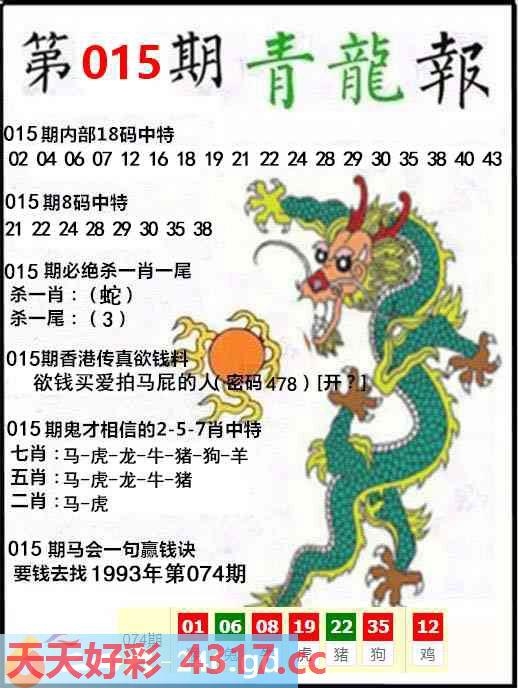 第015期青龍報
015期内部18码中特
02 04 06 07 12 16 18 19 21 22 24 28 29 30 35 38 40 43
015期8码中特
21 22 24 28 29 30 35 38
015期必绝杀一肖一尾
杀一肖：（蛇）
杀一尾：（3）
015期香港传真欲钱料
欲钱买爱拍马屁的人(密码478)[开？]
015期鬼才相信的2-5-7肖中特
七肖：马-虎-龙-牛-猪-狗-羊
五肖：马-虎-龙-牛-猪
二肖：马-虎
015期马会一句赢钱诀
要钱去找1993年第074期
074期 01 06 08 19 22 35 12
兔 虎 猪 狗 鸡
天天好彩 4317.cc